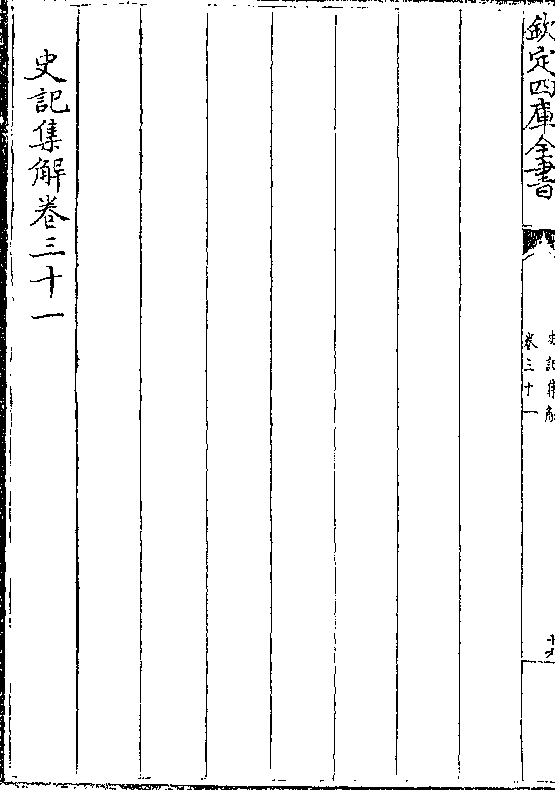 欽定四庫全書
史記集解
卷三十一
史記集解卷三十一